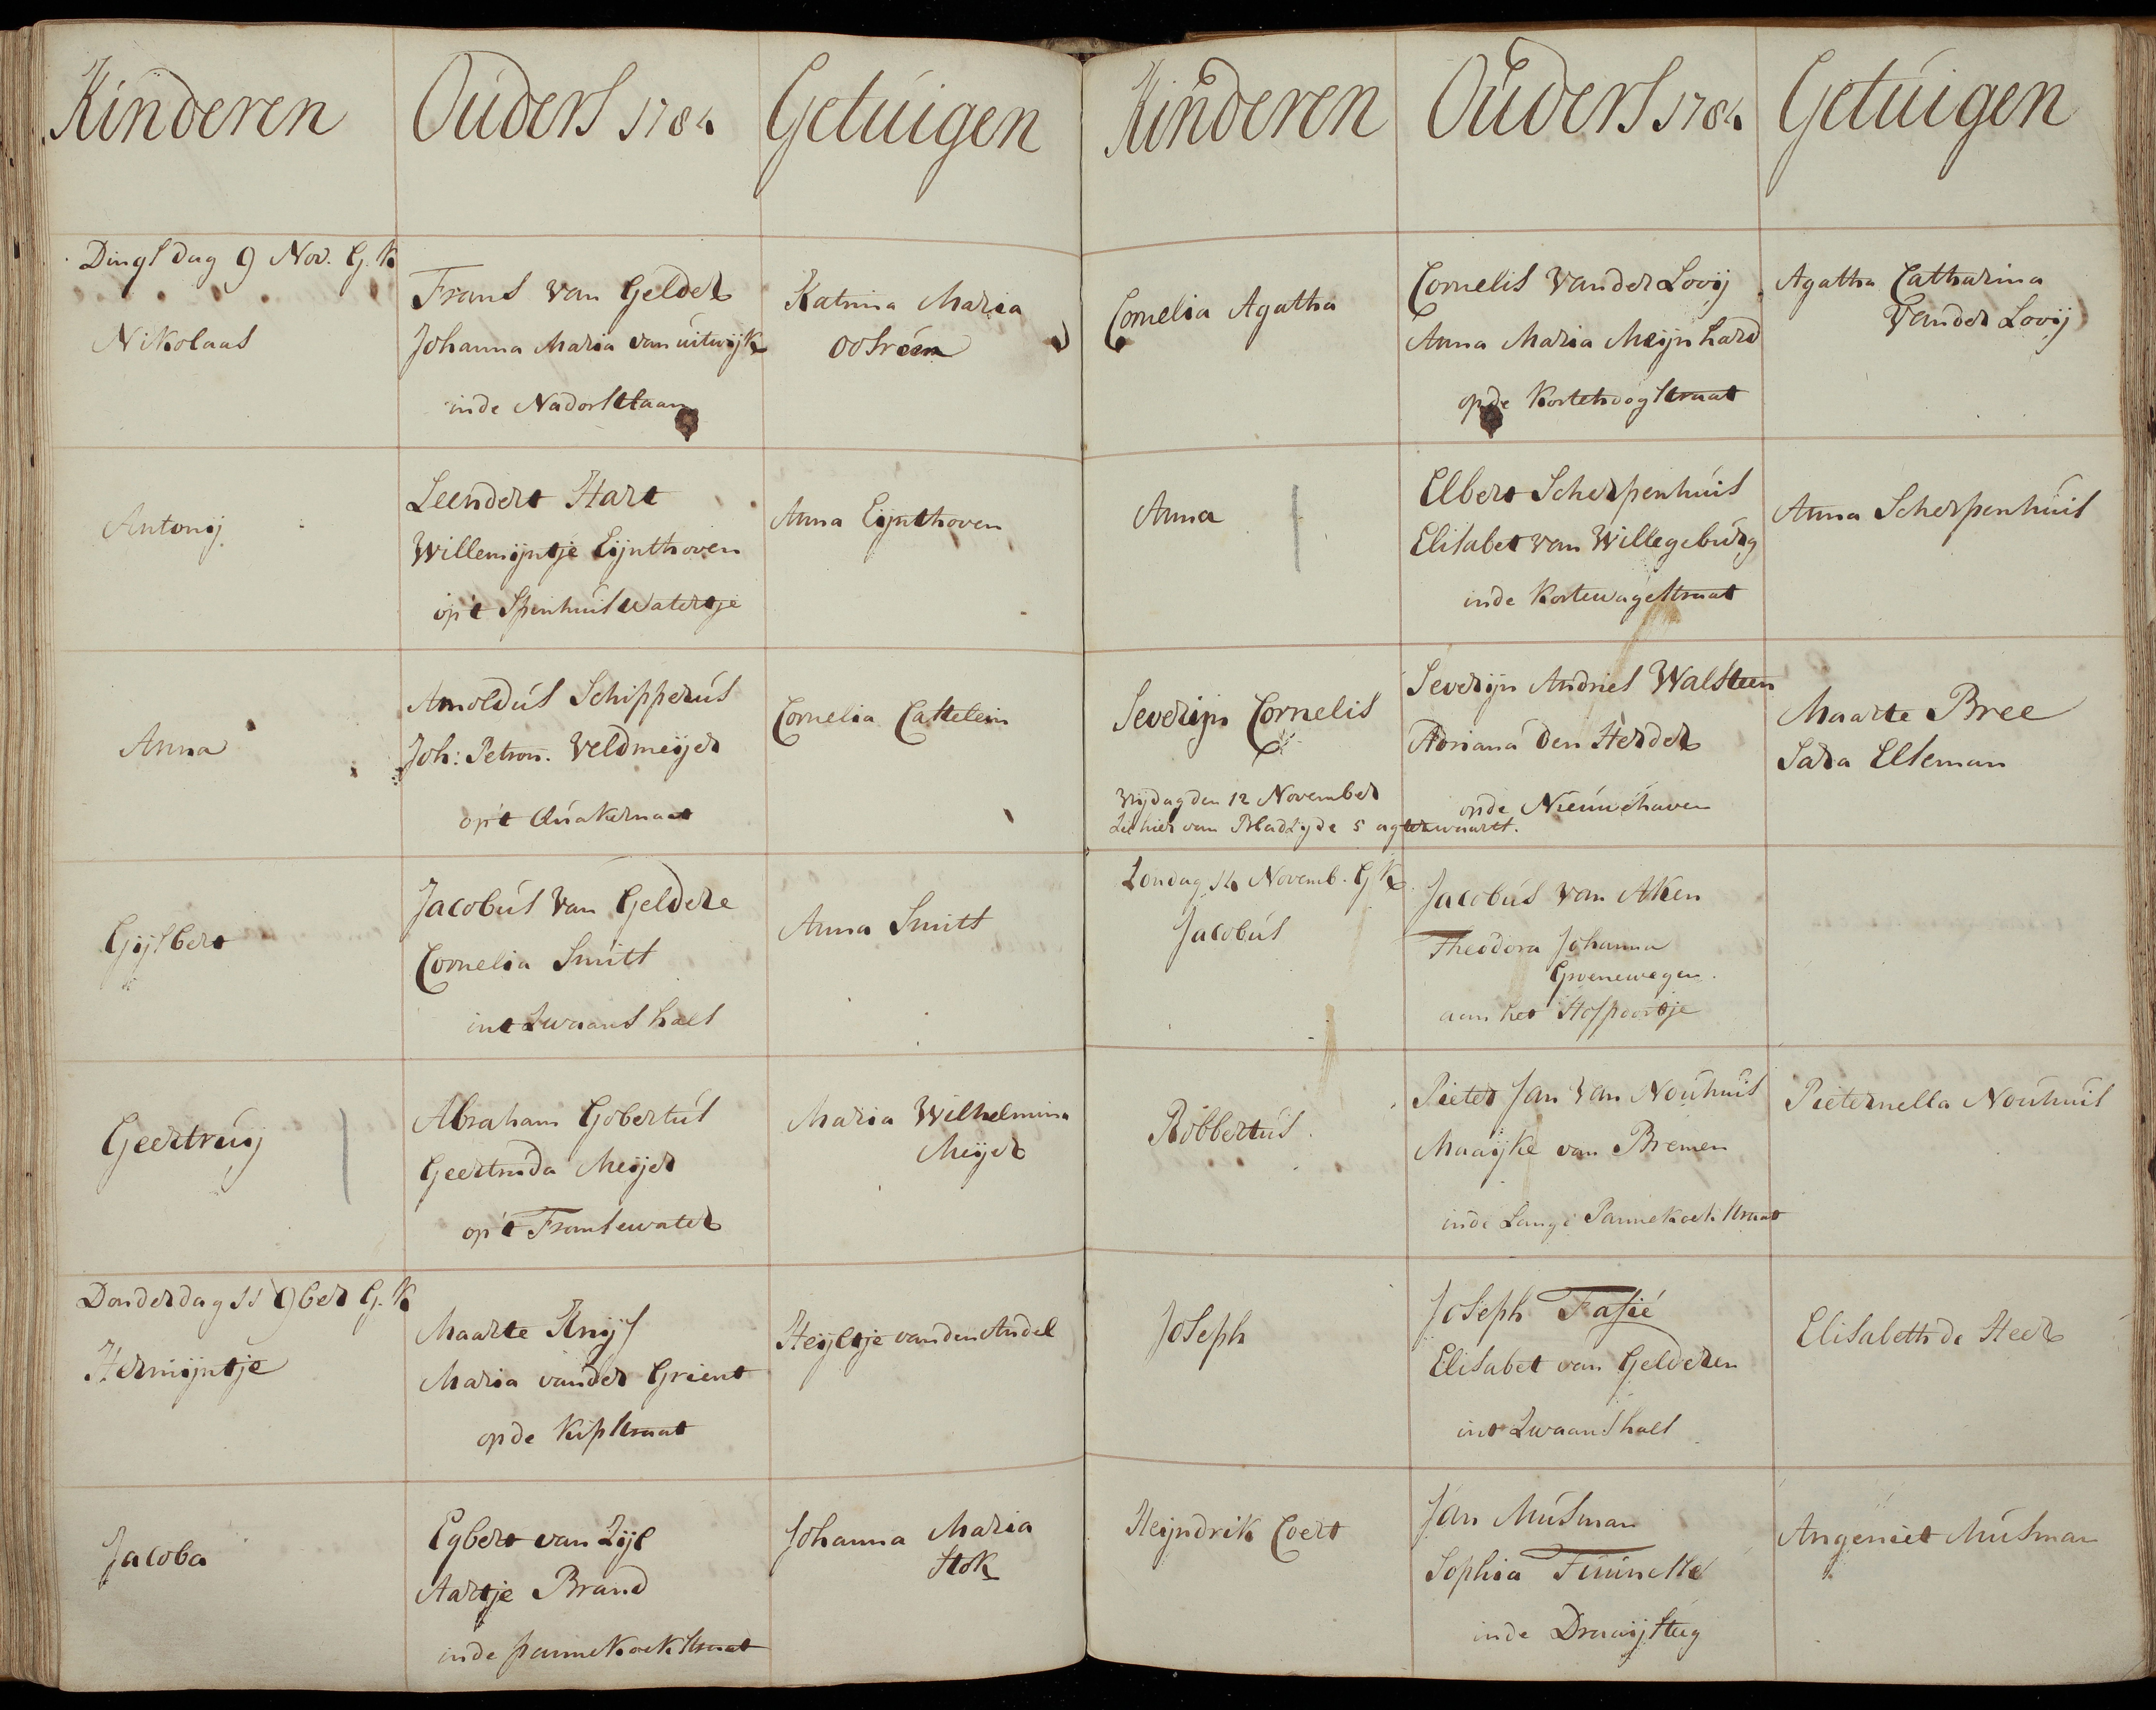 Kinderen
Ouders 1784
Getuigen
Dingsdag 9 Nov. G. K
Nikolaas
Frans van Gelder
Johanna Maria van uitwijk
inde Nadorstlaan
Katrina Maria
Antonij
Leendert Hart
Willemijntje Eijnthoven
op't Spinhuis Watertje
Anna Eijnthoven
Anna
Arnoldus Schipperus
Joh: Petron. Veldmeijer
op't Quakernaat
Cornelia Castelein
Gijsbert
Jacobus van Geldere
Cornelia Smitt
int Zwaans hals
Anna Smitt
Geertruij
Abraham Gobertus
Geertruda Meijer
op't Fransewater
Maria Wilhelmina
Meijer
Donderdag 11 9ber G. K
Hermijntje
Maarte Knijf
Maria vander Grient
op de Kipstraat
Heijltje vanden Andel
Jacoba
Egbert van Zijl
Aartje Brand
inde pannekoekstraat
Johanna Maria
Stok
Kinderen
Ouders 1784
Getuigen
Cornelia Agatha
Cornelis Vander Looij
Anna Maria Meijnhard
op de Kortehoogstraat
Agatha Catharina
Vander Looij
Anna
Elbert Scherpenhuis
Elisabet van Willegeburg
inde Kortewagestraat
Anna Scherpenhuis
Severijn Cornelis
Vrijdag den 12 November
Ziet hier van Bladzijde 5 agterwaarts.
Severijn Andries Walsteen
Adriana Den Herder
opde Nieuwehaven
Maarte Bree
Sara Elseman
Zondag 14 Novemb. G K
Jacobus
Jacobus van Aken
Theodora Johanna
Groenewegen.
aan het Hofpoortje
Robbertus.
Pieter Jan van Nouhuis
Maaijke van Bremen
inde Lange Pannekoekstraat
Pieternella Nouhuis
Joseph
Joseph Fasié
Elisabet van Gelderen
int Zwaanshals
Elisabeth de Heer
Heijndrik Coert
Jan Musman
Sophia
inde Draaijsteeg
Angeniet Musman